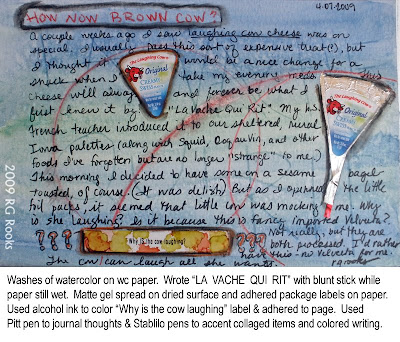 4.07.2009
HOW NOW BROWN COW?
A couple weeks ago I saw laughing cow cheese was on
special. I usually pass this sort of expensive treat(?), but
I thought it would be a nice change for a
snack when I take my evening meds. This
cheese will always and forever be what I
first knew it by: "La Vache Qui Rit" My h.s.
french teacher introduced it to our sheltered, rural
Iowa palettes (along with squid, Coq au Vin, and other
foods I've forgotten but are no longer "strange" to me.)
This morning I decided to have some on a sesame bagel
toasted, of course. (It was delish) But as I opened the little
foil packs, it seemed that little cow was mocking me. Why
is she laughing? Is it because this is fancy imported Velveeta?
Not really, but they are
both processed. I'd rather
have this - no Velveeta for me.
The cow can laugh all she wants.
rgrooks
The Laughing Cow
Original
CREAMY
SWISS
The Laughing Cow
Original
CREAMY
SWISS
? ? ? Why is the cow laughing? ? ? ?
2009 RG Rooks
Washes of watercolor on wc paper. Wrote "LA VACHE QUI RIT" with blunt stick while
paper still wet. Matte gel spread on dried surface and adhered package labels on paper.
Used alcohol ink to color "Why is the cow laughing" label & adhered to page. Used
Pitt pen to journal thoughts & Stablilo pens to accent collaged items and colored writing.